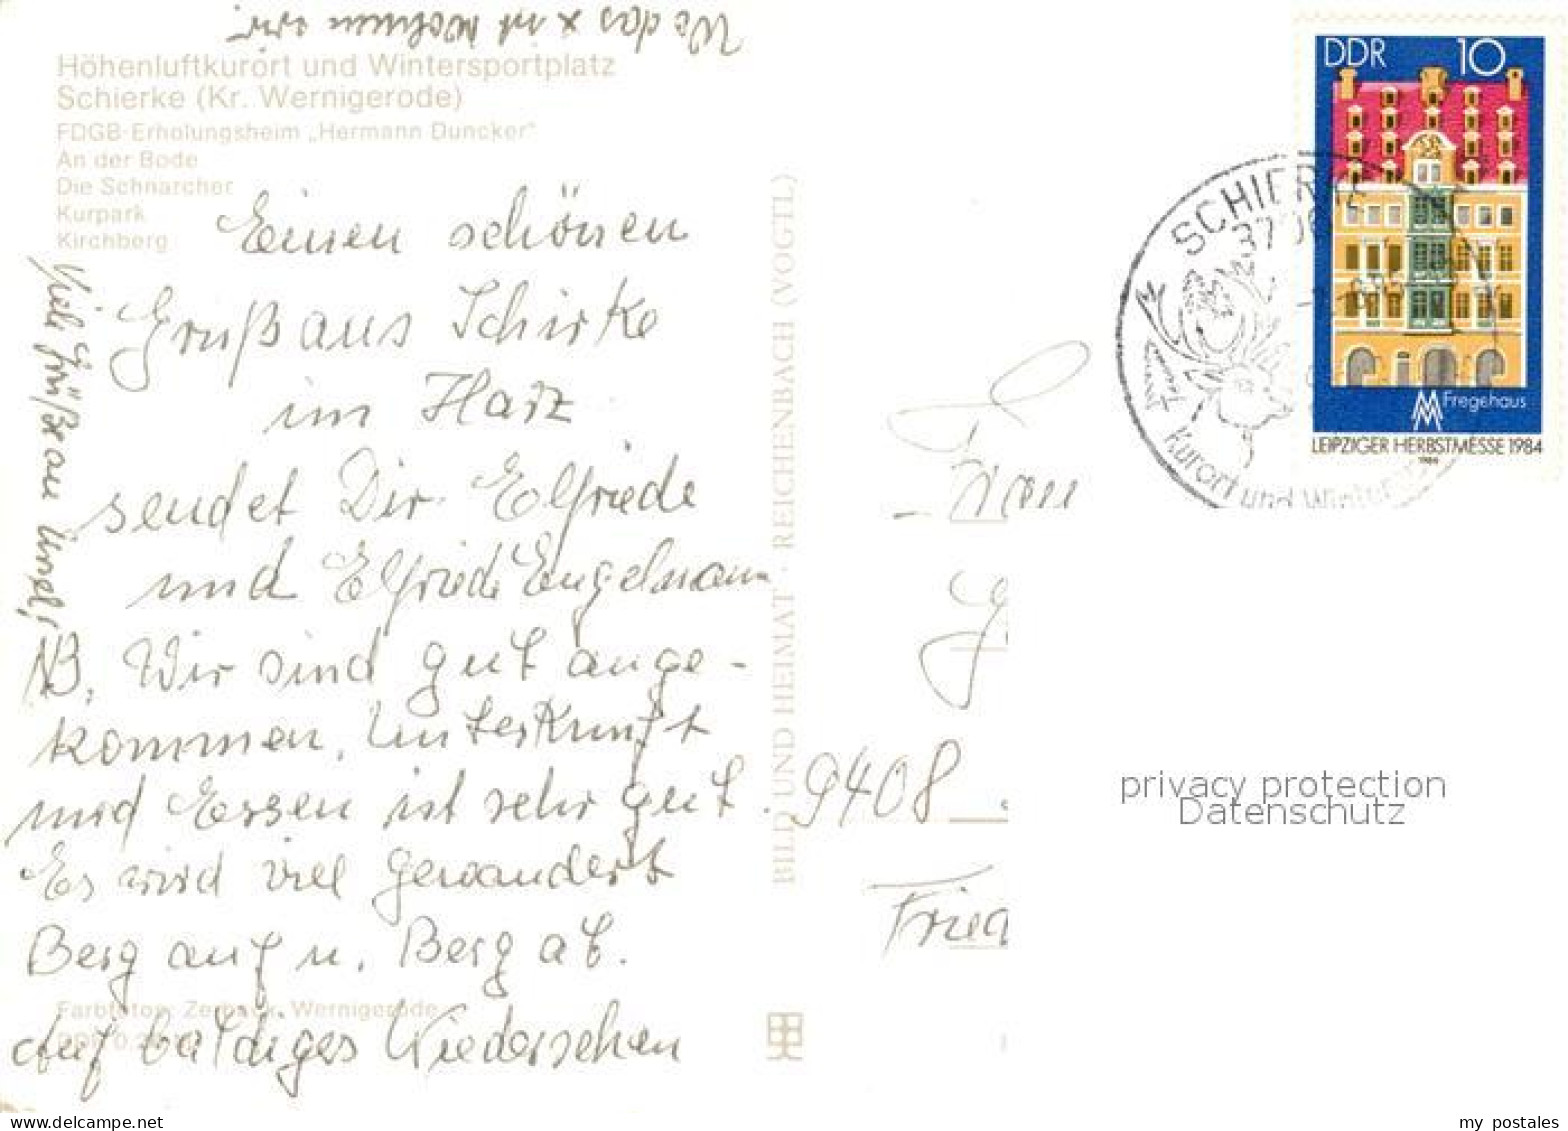 Wo das x ist wohnen wir.
Höhenluftkurort und Wintersportplatz
Schierke (Kr. Wernigerode)
FDGB-Erholungsheim „Hermann Duncker"
An der Bode
Die Schnarcher
Kurpark
Kirchberg
Einen schönen
Gruß aus Schirke
im Harz
sendet Dir Elfriede
und Elfriede Engelmann
NB. Wir sind gut ange-
kommen, Unterkunft
und Essen ist sehr gut.
Es wird viel gewandert
Berg auf u. Berg ab.
Auf baldiges Wiedersehen
Viele Grüße an Ursel!
Farbfotos: Zerback, Wernigerode
BILD UND HEIMAT · REICHENBACH (VOGTL)
DDR 10
Fregehaus
LEIPZIGER HERBSTMESSE 1984
1984
SCHIERKE
Kurort und Winter
Frau
9408
Fried
privacy protection
Datenschutz
my postales